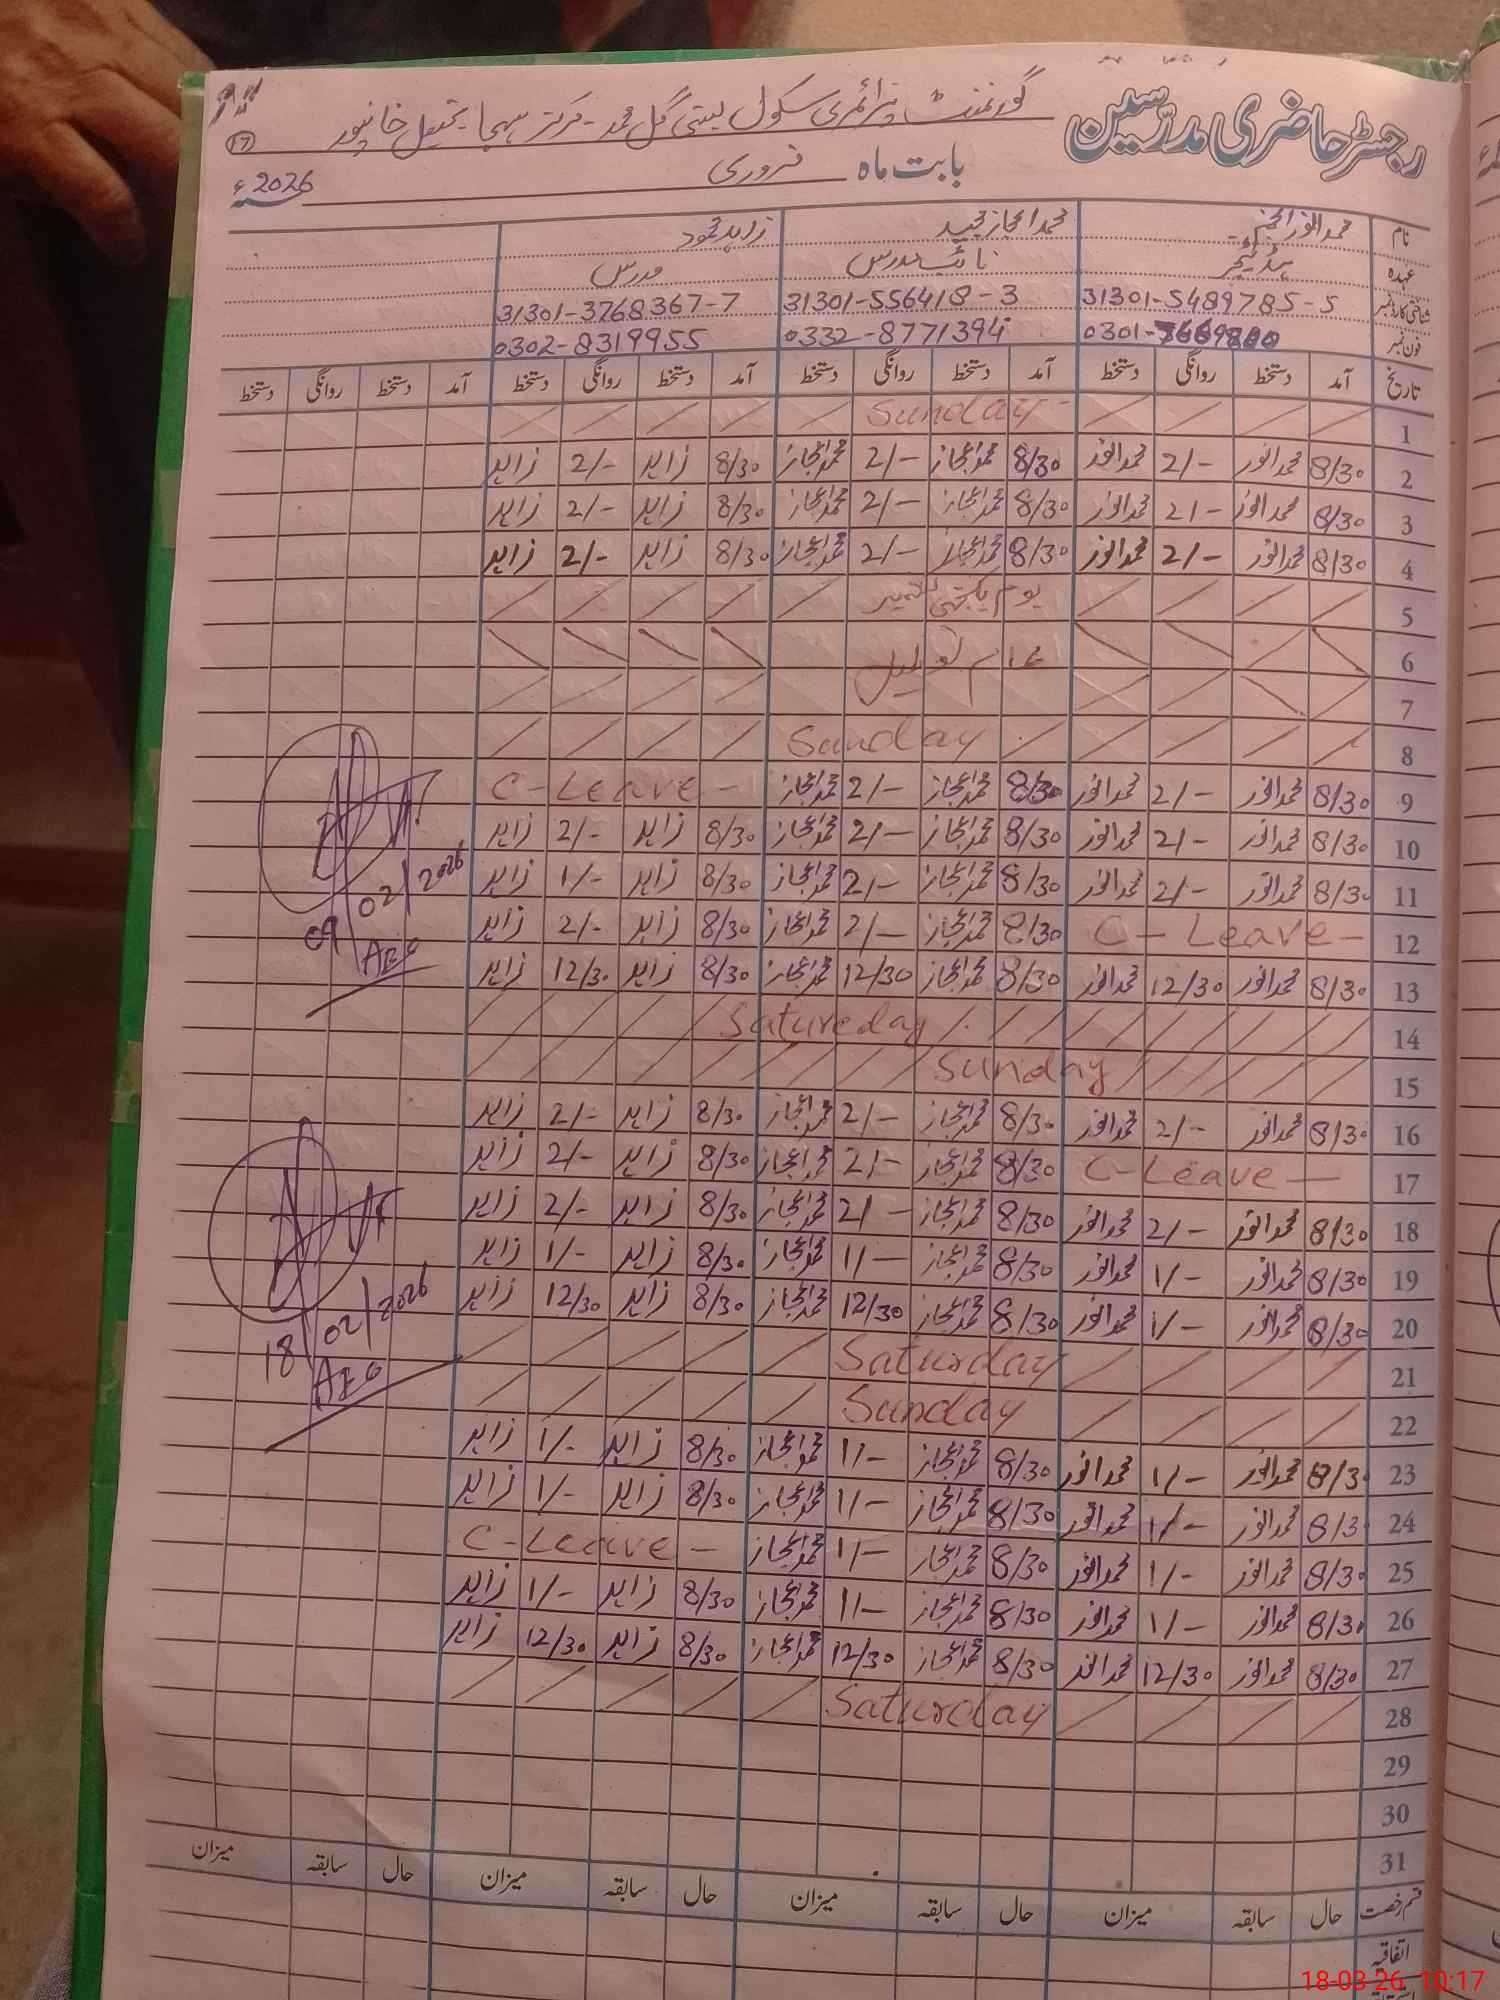 گورنمنٹ پرائمری سکول بستی گل محمد - مرکز سہجا - تحصیل خانپور
رجسٹر حاضری مدرّسین
17
بابت ماہ فروری 2026ء
نام محمد انور انجم محمد اعجاز مجید زاہد محمود
عہدہ ہیڈ ٹیچر نائب مدرس مدرس
شناختی کارڈ نمبر 31301-5489785-5 31301-556418-3 31301-3768367-7
فون نمبر 0301- 0332-8771394 0302-8319955
تاریخ آمد دستخط روانگی دستخط آمد دستخط روانگی دستخط آمد دستخط روانگی دستخط آمد دستخط روانگی دستخط
1 Sunday
2 8/30 محمد انور 2/- محمد انور 8/30 محمد اعجاز 2/- محمد اعجاز 8/30 زاہد 2/- زاہد
3 8/30 محمد انور 2/- محمد انور 8/30 محمد اعجاز 2/- محمد اعجاز 8/30 زاہد 2/- زاہد
4 8/30 محمد انور 2/- محمد انور 8/30 محمد اعجاز 2/- محمد اعجاز 8/30 زاہد 2/- زاہد
5 یوم یکجہتی کشمیر
6 عام تعطیل
7
8 Sunday
9 8/30 محمد انور 2/- محمد انور 8/30 محمد اعجاز 2/- محمد اعجاز C-Leave-
10 8/30 محمد انور 2/- محمد انور 8/30 محمد اعجاز 2/- محمد اعجاز 8/30 زاہد 2/- زاہد
11 8/30 محمد انور 2/- محمد انور 8/30 محمد اعجاز 2/- محمد اعجاز 8/30 زاہد 1/- زاہد
12 C-Leave- 8/30 محمد اعجاز 2/- محمد اعجاز 8/30 زاہد 2/- زاہد
13 8/30 محمد انور 12/30 محمد انور 8/30 محمد اعجاز 12/30 محمد اعجاز 8/30 زاہد 12/30 زاہد
09/02/2026
AEO
14 Satureday
15 Sunday
16 8/30 محمد انور 2/- محمد انور 8/30 محمد اعجاز 2/- محمد اعجاز 8/30 زاہد 2/- زاہد
17 C-Leave- 8/30 محمد اعجاز 2/- محمد اعجاز 8/30 زاہد 2/- زاہد
18 8/30 محمد انور 2/- محمد انور 8/30 محمد اعجاز 2/- محمد اعجاز 8/30 زاہد 2/- زاہد
19 8/30 محمد انور 1/- محمد انور 8/30 محمد اعجاز 1/- محمد اعجاز 8/30 زاہد 1/- زاہد
20 8/30 محمد انور 1/- محمد انور 8/30 محمد اعجاز 12/30 محمد اعجاز 8/30 زاہد 12/30 زاہد
18/02/2026
AEO
21 Saturday
22 Sunday
23 8/3 محمد انور 1/- محمد انور 8/30 محمد اعجاز 1/- محمد اعجاز 8/30 زاہد 1/- زاہد
24 8/3 محمد انور 1/- محمد انور 8/30 محمد اعجاز 1/- محمد اعجاز 8/30 زاہد 1/- زاہد
25 8/30 محمد انور 1/- محمد انور 8/30 محمد اعجاز 1/- محمد اعجاز C-Leave-
26 8/30 محمد انور 1/- محمد انور 8/30 محمد اعجاز 1/- محمد اعجاز 8/30 زاہد 1/- زاہد
27 8/30 محمد انور 12/30 محمد انور 8/30 محمد اعجاز 12/30 محمد اعجاز 8/30 زاہد 12/30 زاہد
28 Saturday
29
30
31
قسم رخصت حال سابقہ میزان حال سابقہ میزان حال سابقہ میزان حال سابقہ میزان
اتفاقیہ
18-03-26 10:17